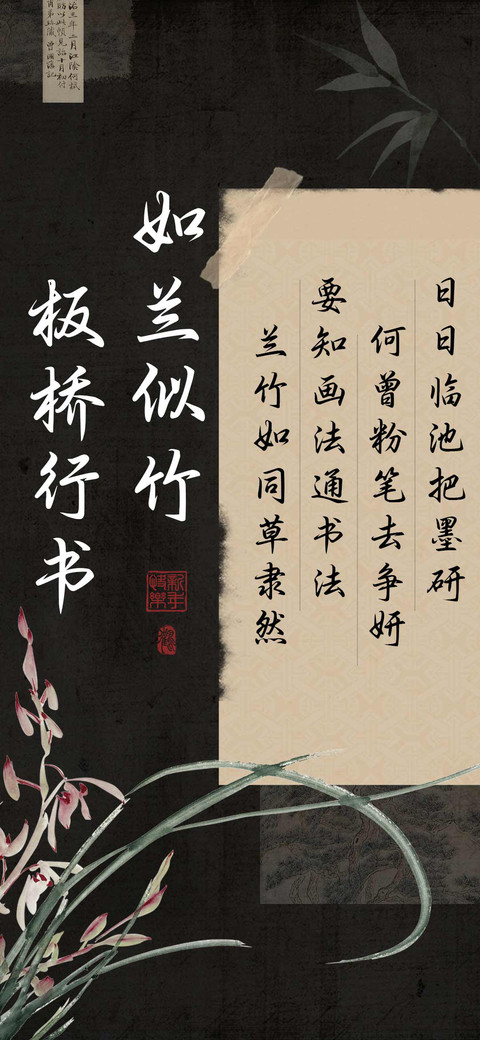 日日临池把墨研
何曾粉笔去争妍
要知画法通书法
兰竹如同草隶然
如兰似竹
板桥行书